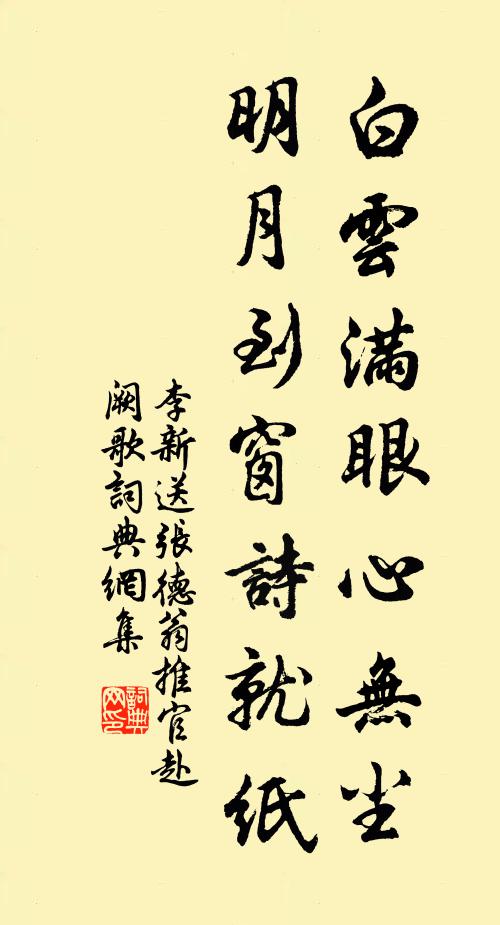 白雲滿眼心無尘
明月到窗詩就紙
李新送張德翁推官赴
闕歌詞典網集
詞典
网印